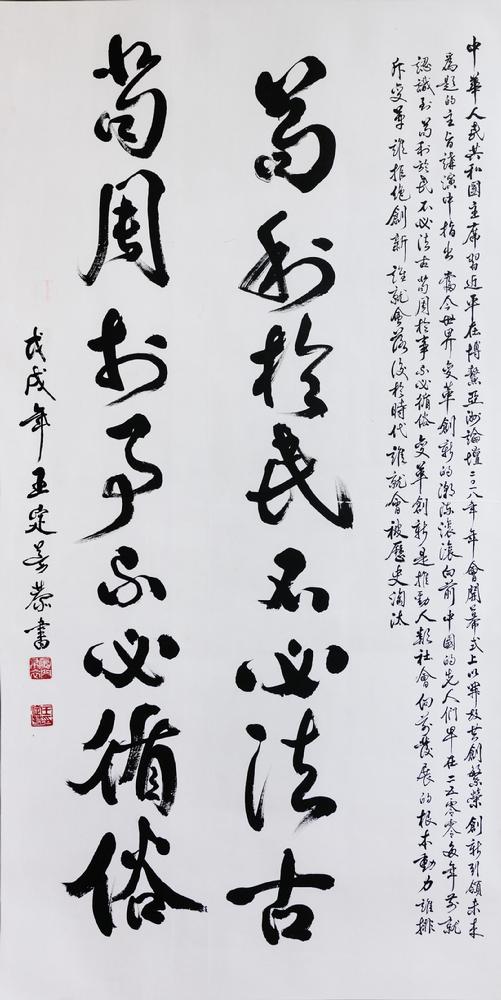 中華人民共和國主席習近平在博鰲亞洲論壇二〇一八年年會開幕式上以開放共創繁榮創新引領未來
為題的主旨講演中指出當今世界變革創新的潮流滾滾向前中國的先人們早在二五零零多年前就
認識到苟利於民不必法古苟周於事不必循俗變革創新是推動人類社會向前發展的根本動力誰排
斥變革誰拒絕創新誰就會落後於時代誰就會被歷史淘汰
苟利於民不必法古
苟周於事不必循俗
戊戌年王定恭書